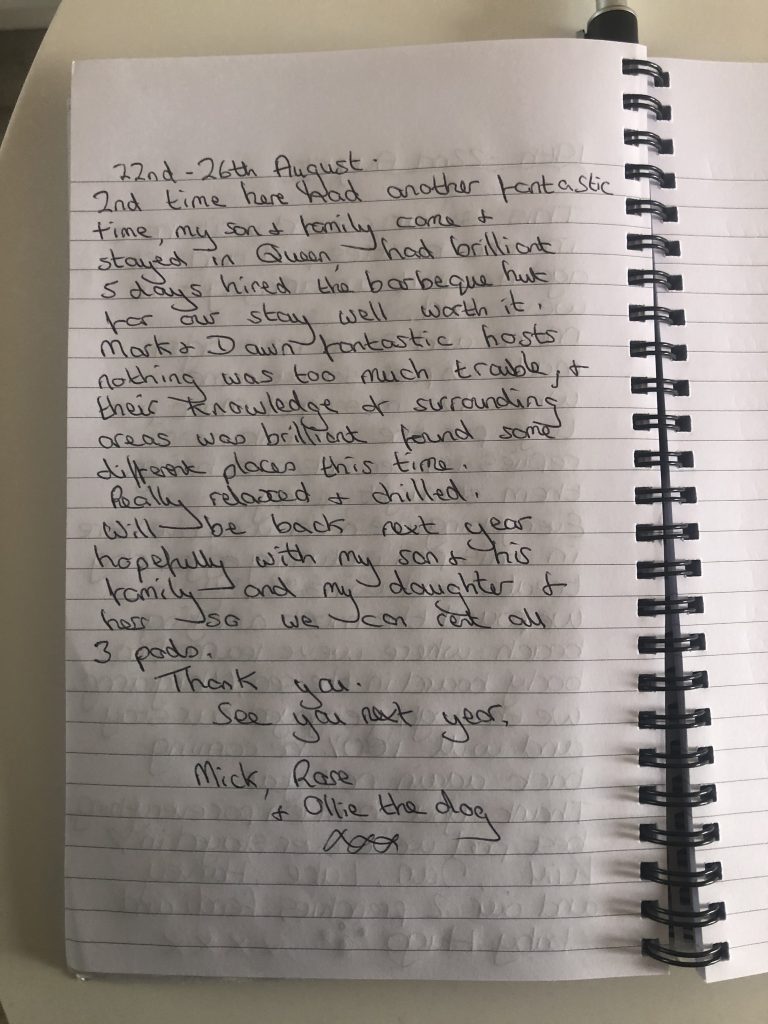 22nd - 26th August.
2nd time here had another fantastic
time, my son & family came &
stayed in Queen, had brilliant
5 days hired the barbeque hut
for our stay well worth it.
Mark & Dawn fantastic hosts
nothing was too much trouble, &
their knowledge of surrounding
areas was brilliant found some
different places this time.
Really relaxed & chilled.
Will be back next year
hopefully with my son & his
family and my daughter &
hers so we can rent all
3 pods.
Thank you.
See you next year,
Mick, Rose
& Ollie the dog
xxx